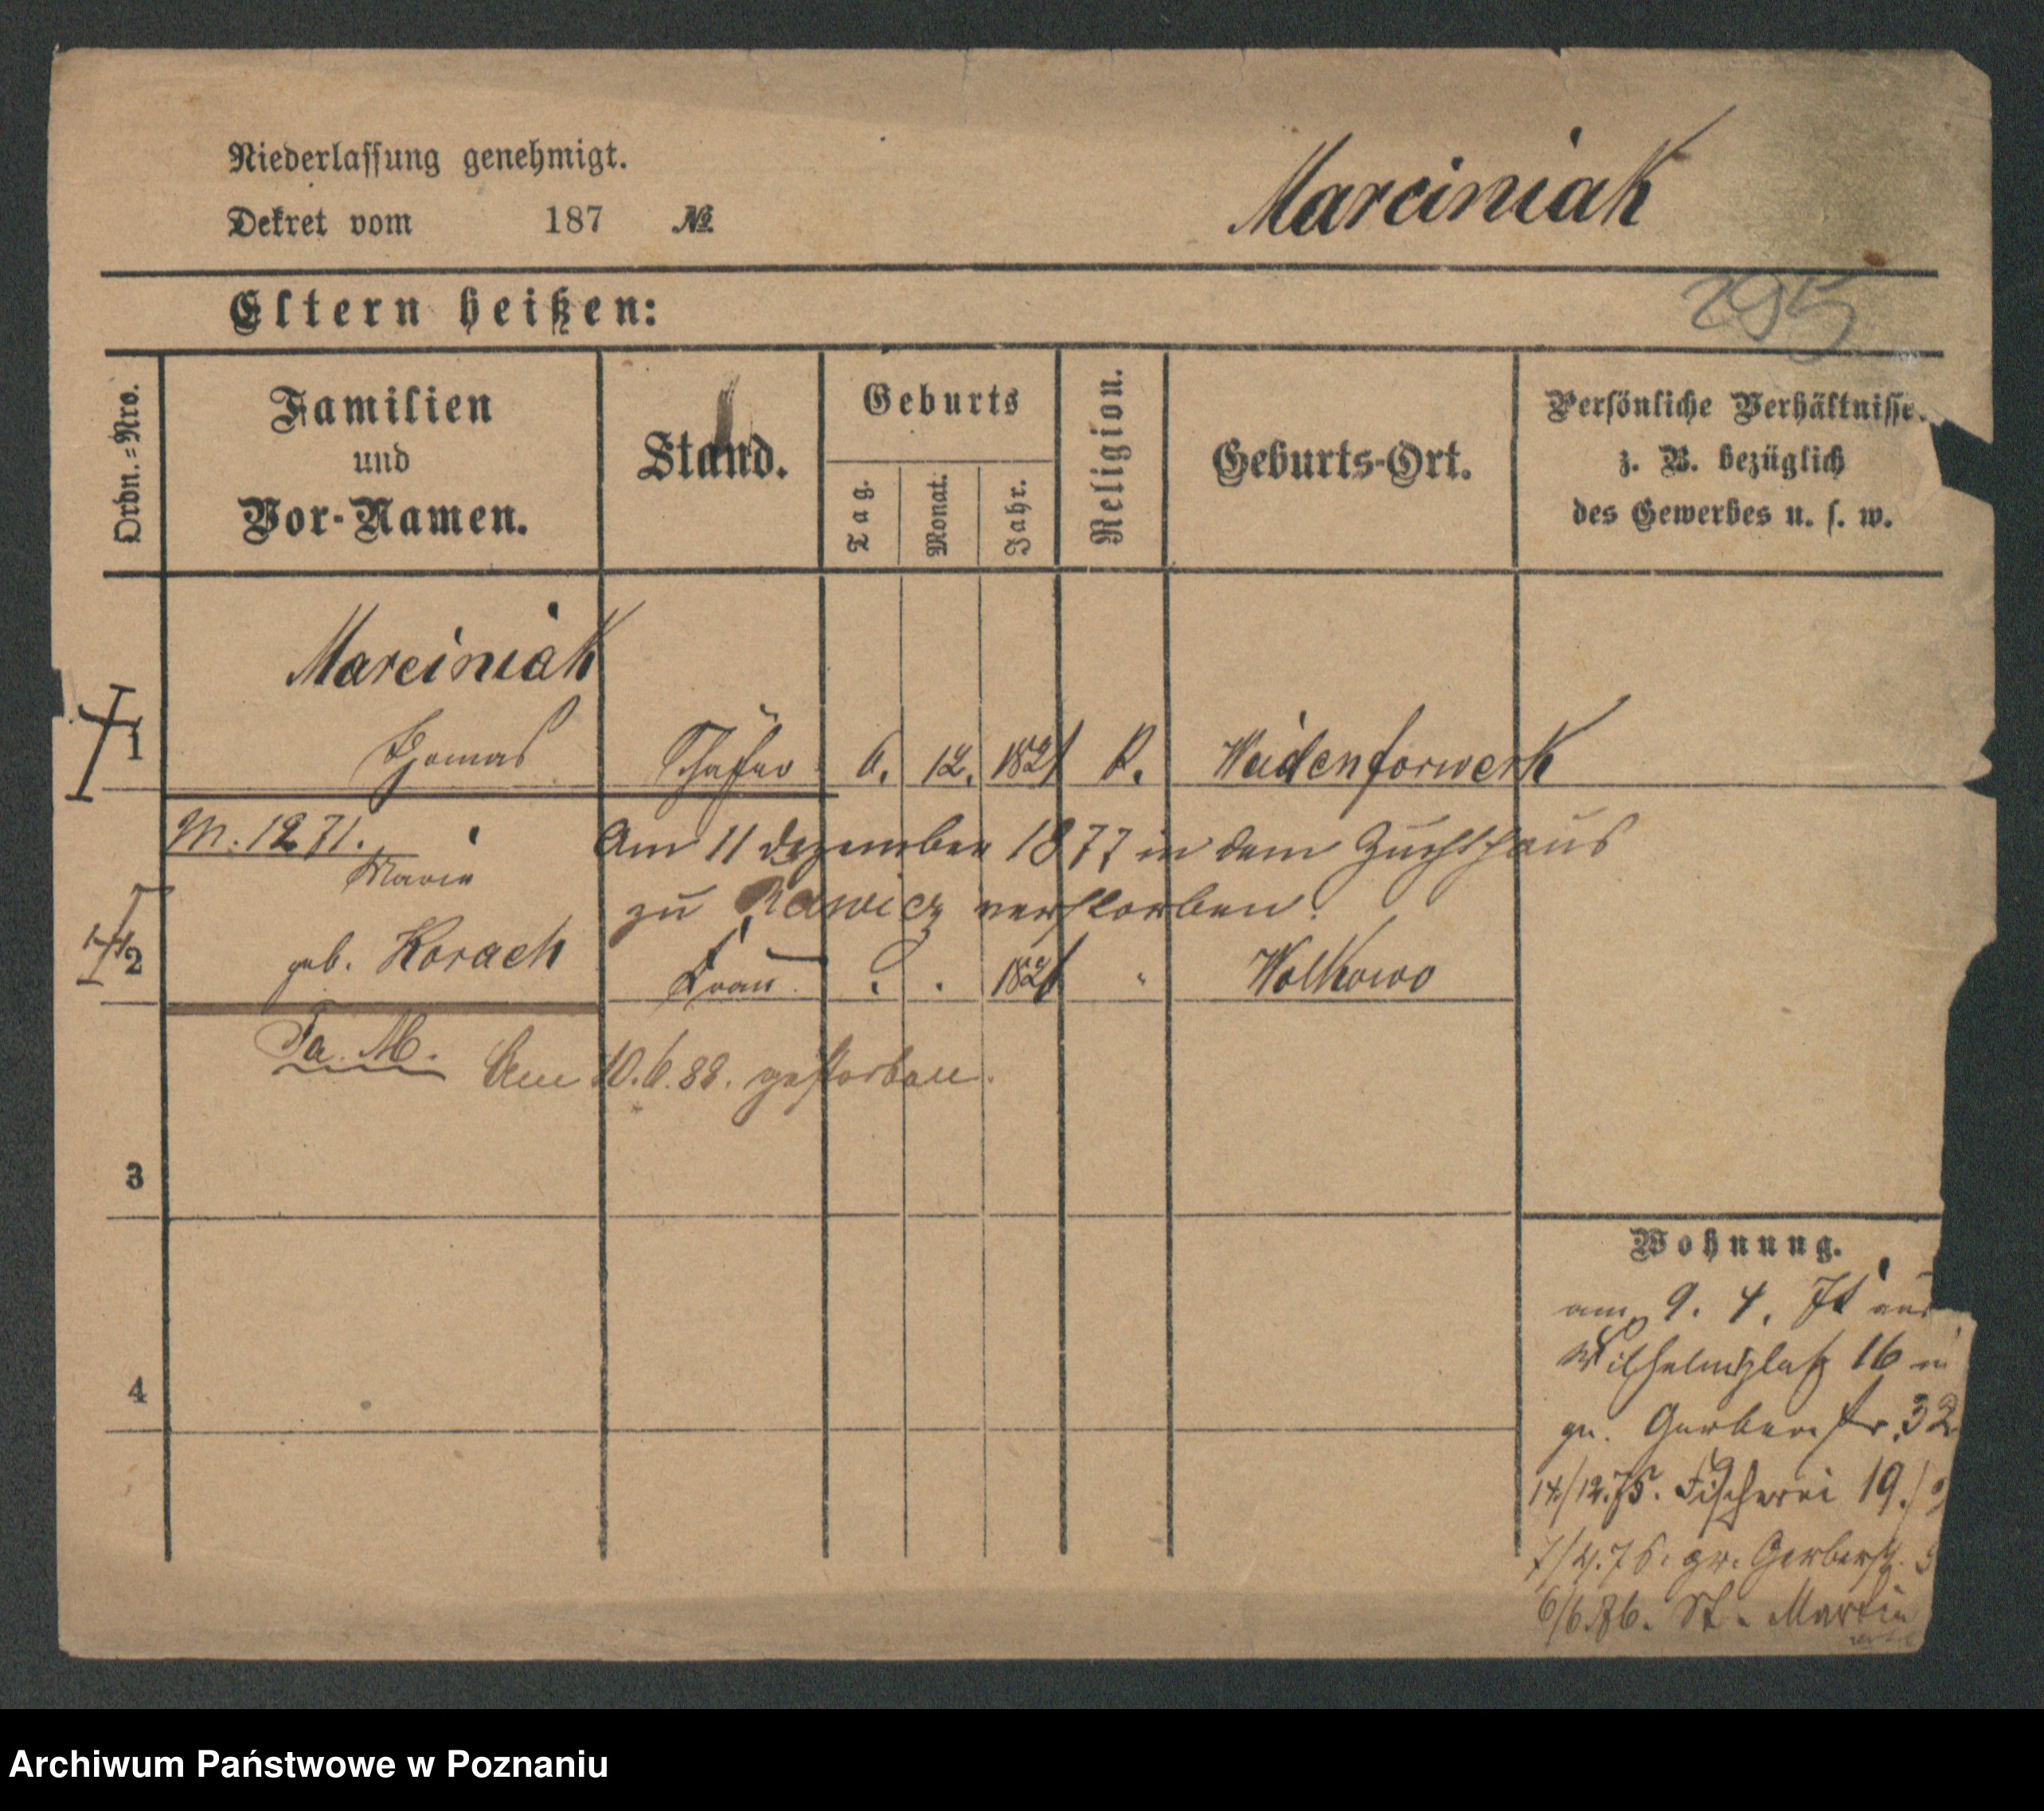 Niederlassung genehmigt.
Dekret vom 187 №
Marciniak
295
Eltern heißen:
Ordn.=Nro.
Familien
und
Vor-Namen.
Stand.
Geburts
Tag.
Monat.
Jahr.
Religion.
Geburts-Ort.
Persönliche Verhältnisse.
z. B. bezüglich
des Gewerbes u. s. w.
Marciniak
1 Tomas Schäfer 6. 12. 1821 R. Weidenforwerk
M. 1271.
Am 11 Dezember 1877 in dem Zuchthaus
Marie
zu Rawicz verstorben.
2 geb. Korach Frau 1821 " Wolkowo
Am 10.6.88. gestorben.
3
4
Wohnung.
am 9. 4. aus
Wilhelmsplatz 16 in
gr. Gerberstr. 32
14/12.75. Fischerei 19.
7/4.76. gr. Gerberstr.
6/6.86. St. Martin
Archiwum Państwowe w Poznaniu